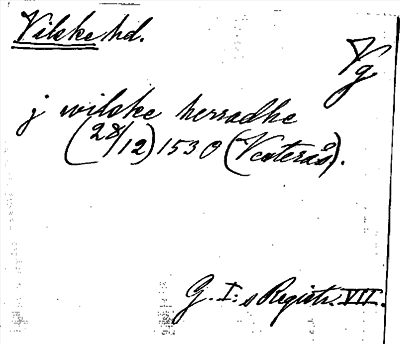 Vilske hd.
Vg
j wilske herradhe
(28/12) 1530 (Vesterås).
G. I: s Registr. VII.